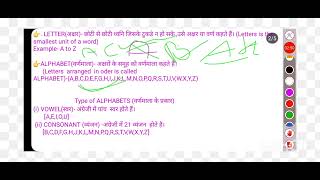 LETTER(अक्षर)- छोटी से छोटी ध्वनि जिसके टुकड़े न हो सकें, उसे अक्षर या वर्ण कहते हैं। (Letters is the
smallest unit of a word)
Example- A to Z
ALPHABET(वर्णमाला)- अक्षरों के समूह को वर्णमाला कहते हैं।
(Letters arranged in oder is called
ALPHABET)-(A,B,C,D,E,F,G,H,I,J,K,L,M,N,O,P,Q,R,S,T,U,V,W,X,Y,Z)
Type of ALPHABETS (वर्णमाला के प्रकार)
(i) VOWEL(स्वर)- अंग्रेजी में पांच स्वर होते हैं।
[A,E,I,O,U]
(ii) CONSONANT (व्यंजन) -अंग्रेजी में 21 व्यंजन होते है।
[B,C,D,F,G,H,J,K,L,M,N,P,Q,R,S,T,V,W,X,Y,Z]
2/5